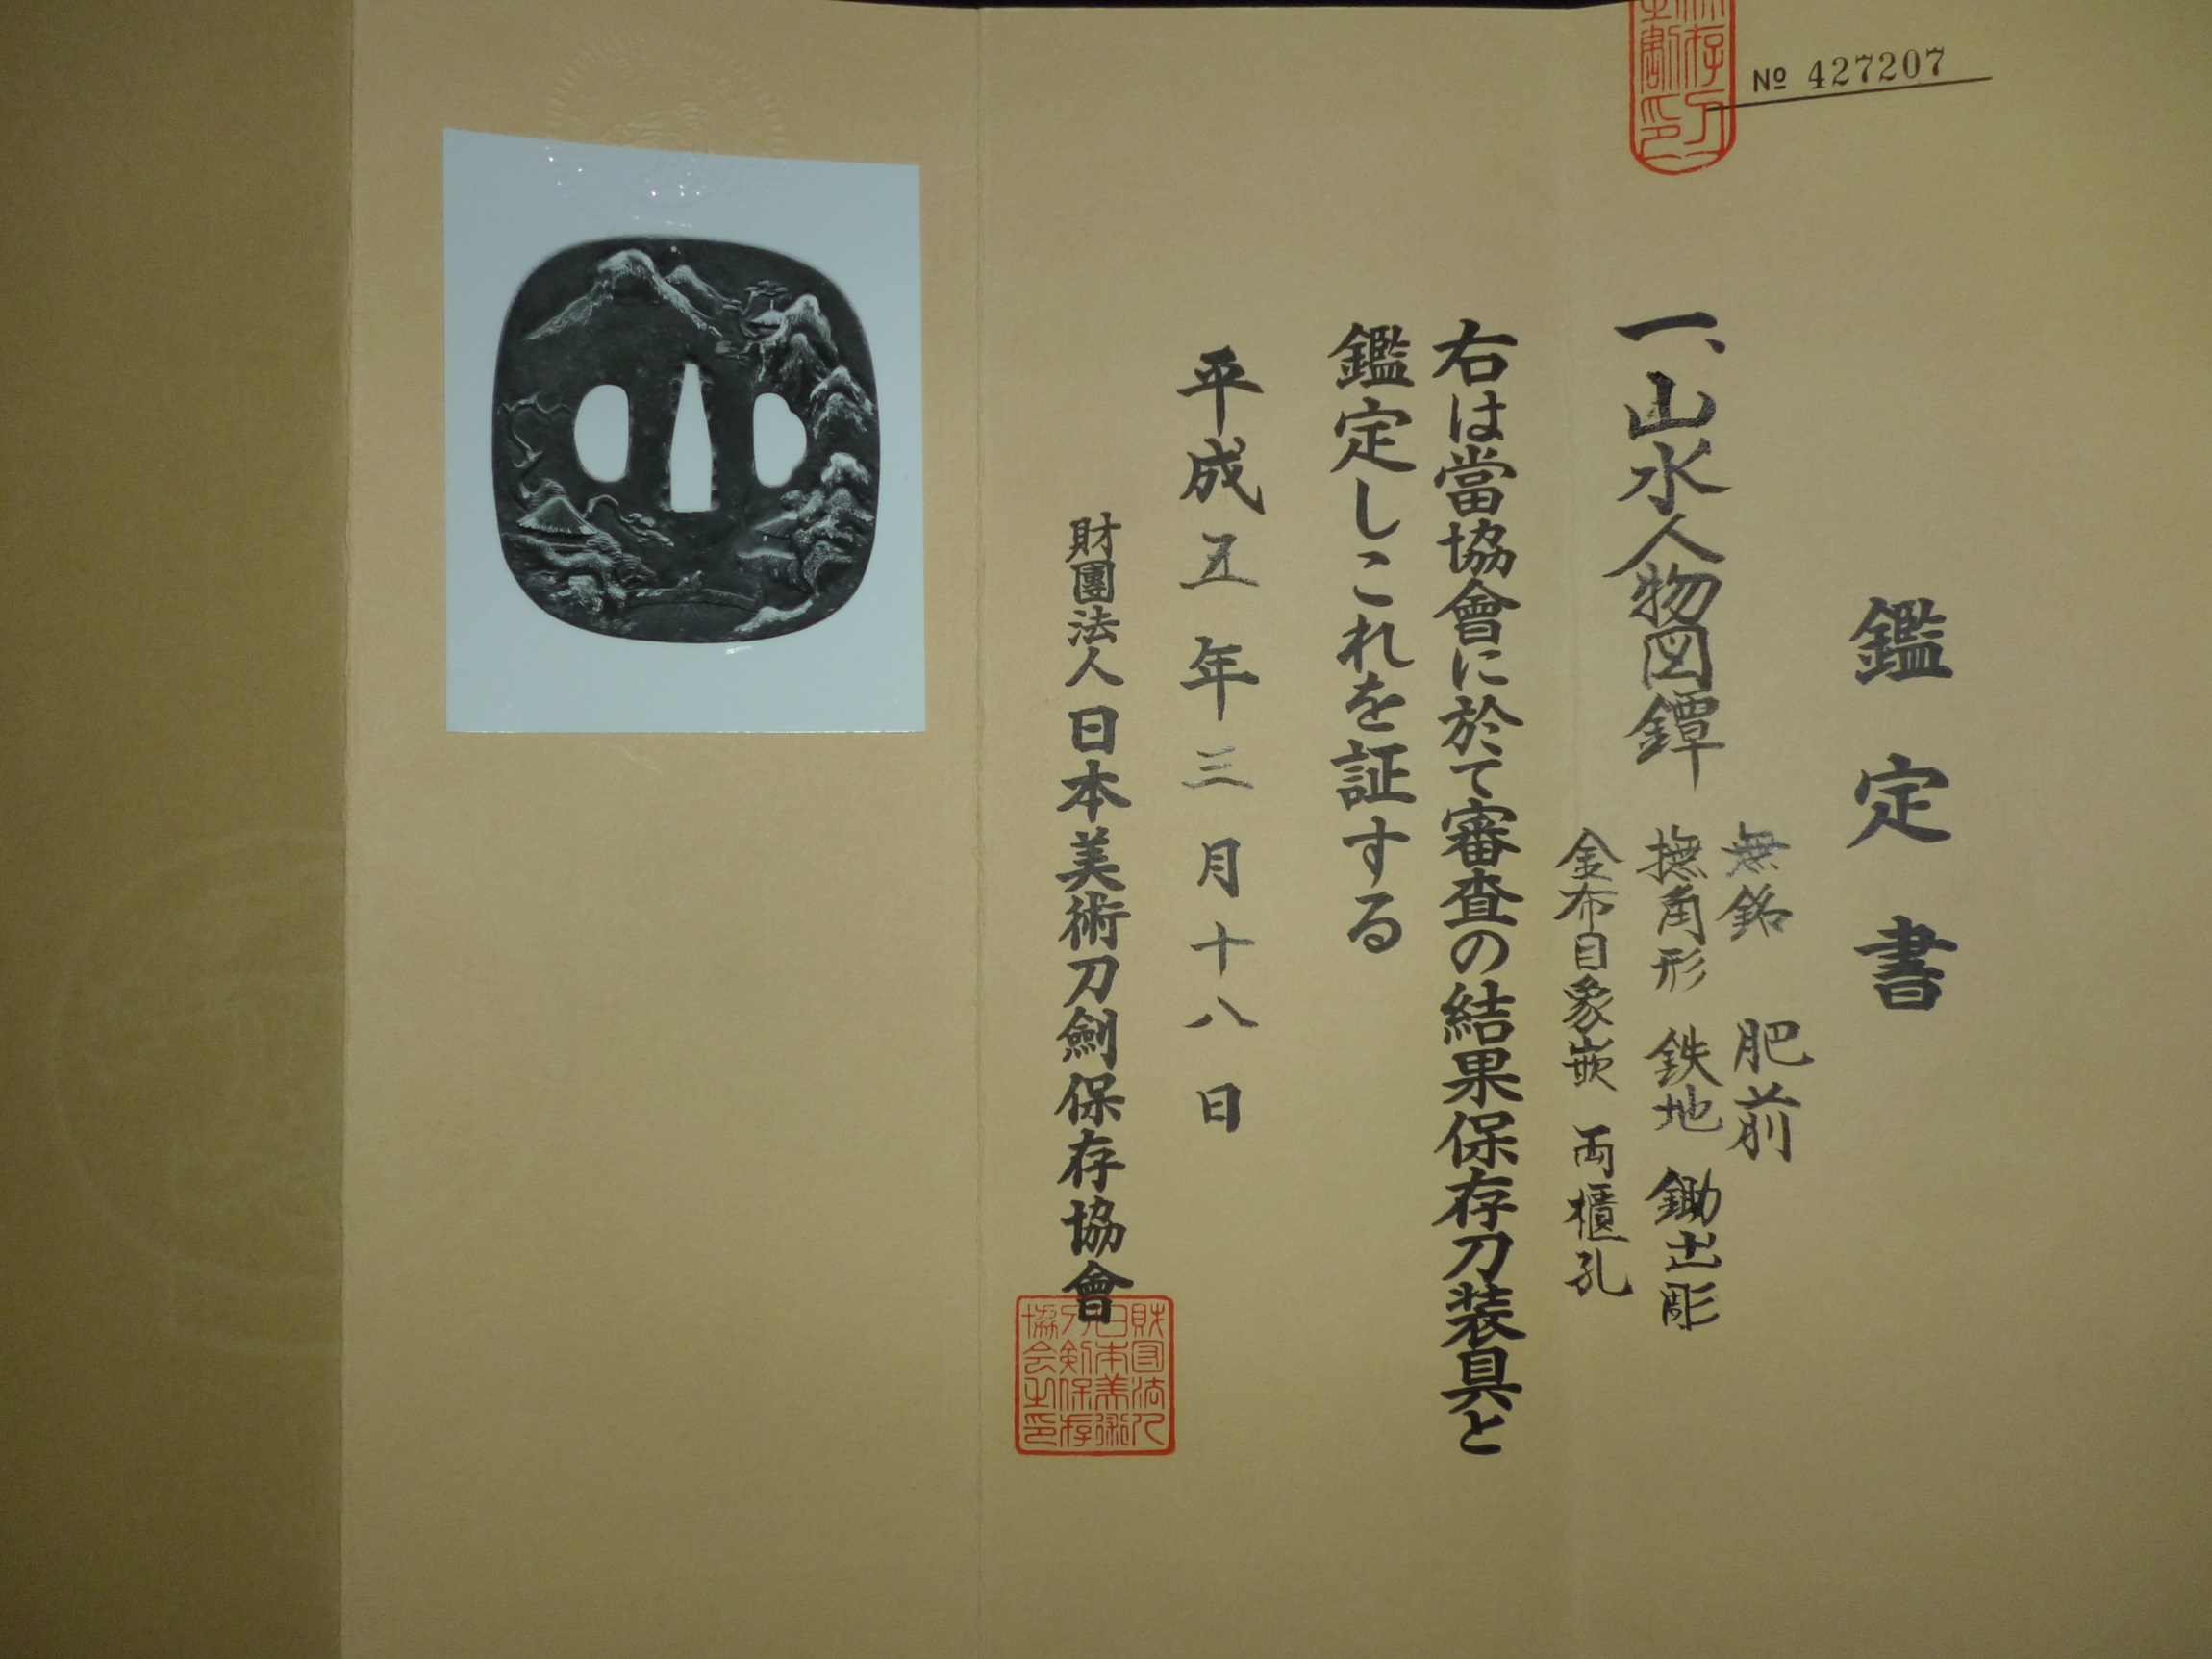 No 427207
鑑定書
一、山水人物図鐔
無銘 肥前
撫角形 鉄地 鋤出彫
金布目象嵌 両櫃孔
右は當協會に於て審査の結果保存刀装具と
鑑定しこれを証する
平成五年三月十八日
財團法人日本美術刀劍保存協會
財団法人
日本美術
刀剣保存
協会之印